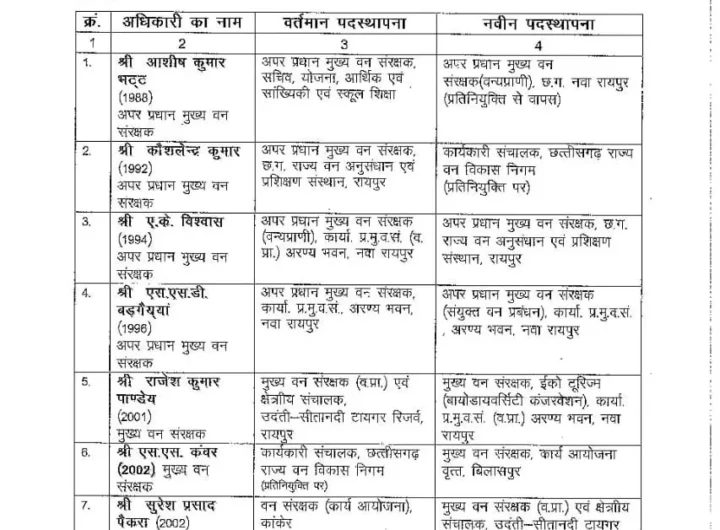 क्रं. अधिकारी का नाम वर्तमान पदस्थापना नवीन पदस्थापना
1 2 3 4
1. श्री आशीष कुमार भट्ट (1988) अपर प्रधान मुख्य वन संरक्षक
अपर प्रधान मुख्य वन संरक्षक,
सचिव, योजना, आर्थिक एवं
सांख्यिकी एवं स्कूल शिक्षा
अपर प्रधान मुख्य वन
संरक्षक(वन्यप्राणी), छ.ग. नवा रायपुर
(प्रतिनियुक्ति से वापस)
2. श्री कौशलेन्द्र कुमार
(1992)
अपर प्रधान मुख्य वन
संरक्षक
अपर प्रधान मुख्य वन संरक्षक,
छ.ग. राज्य वन अनुसंधान एवं
प्रशिक्षण संस्थान, रायपुर
कार्यकारी संचालक, छत्तीसगढ़ राज्य
वन विकास निगम
(प्रतिनियुक्ति पर)
3. श्री ए.के. विश्वास
(1994)
अपर प्रधान मुख्य वन
संरक्षक
अपर प्रधान मुख्य वन संरक्षक
(वन्यप्राणी), कार्या. प्र.मु.व.सं. (व.
प्रा.) अरण्य भवन, नवा रायपुर
अपर प्रधान मुख्य वन संरक्षक, छ.ग.
राज्य वन अनुसंधान एवं प्रशिक्षण
संस्थान, रायपुर
4. श्री एस.एस.डी.
बड़गैय्यां
(1996)
अपर प्रधान मुख्य वन
संरक्षक
अपर प्रधान मुख्य वन संरक्षक,
कार्या. प्र.मु.व.सं., अरण्य भवन,
नवा रायपुर
अपर प्रधान मुख्य वन संरक्षक
(संयुक्त वन प्रबंधन), कार्या. प्र.मु.व.सं.
, अरण्य भवन, नवा रायपुर
5. श्री राजेश कुमार
पाण्डेय
(2001)
मुख्य वन संरक्षक
मुख्य वन संरक्षक (व.प्रा.) एवं
क्षेत्रीय संचालक,
उदंती-सीतानदी टायगर रिजर्व,
रायपुर
मुख्य वन संरक्षक, ईको टूरिज्म
(बायोडायवर्सिटी कंजरवेशन), कार्या.
प्र.मु.व.सं. (व.प्रा.) अरण्य भवन, नवा
रायपुर
6. श्री एस.एस. कंवर
(2002) मुख्य वन
संरक्षक
कार्यकारी संचालक, छत्तीसगढ़
राज्य वन विकास निगम
(प्रतिनियुक्ति पर)
मुख्य वन संरक्षक, कार्य आयोजना
वृत्त, बिलासपुर
7. श्री सुरेश प्रसाद
पैकरा (2002)
वन संरक्षक (कार्य आयोजना),
कांकेर
मुख्य वन संरक्षक (व.प्रा.) एवं क्षेत्रीय
संचालक, उदंती-सीतानदी टायगर